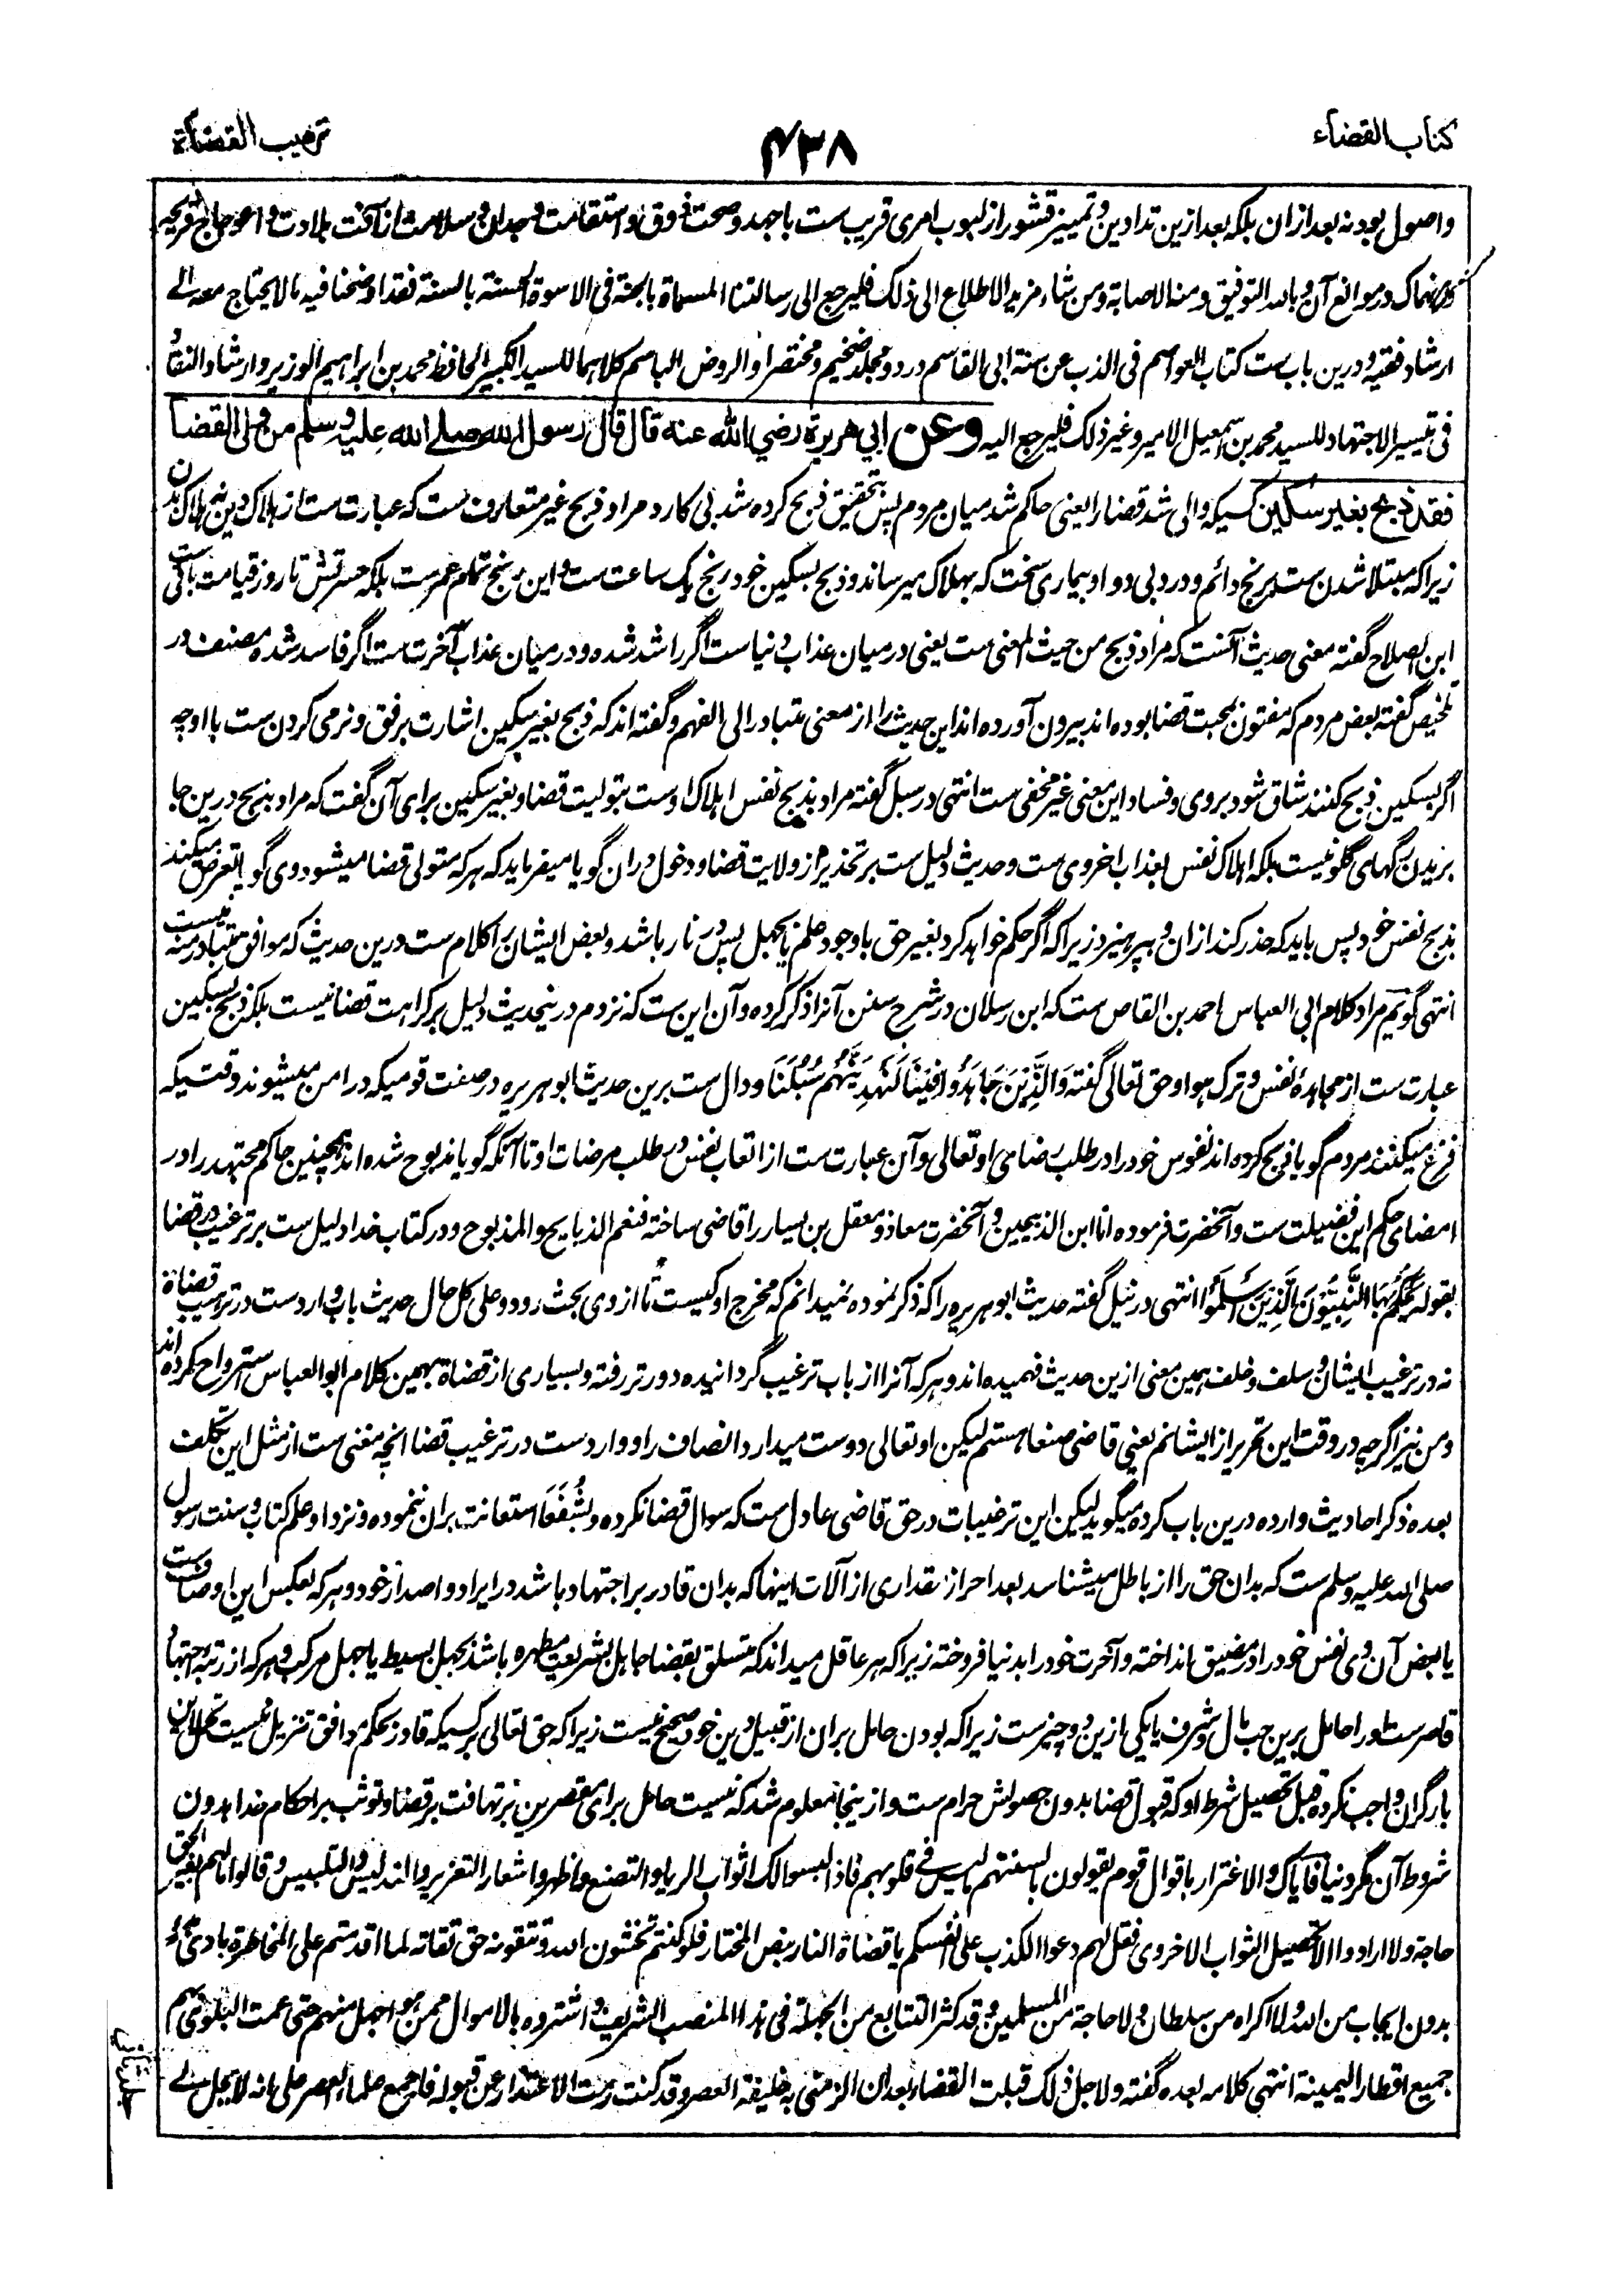 کتاب القضاء
۴۳۸
ترهیب القضاة
واصول بود نه بعد ازان بلکه بعد ازین تداوین و تمییز قشور از لبوب امری قریب ست باجهد و صحت ذوق و استقامت وجدان و سلامت از آفت بلادت و اعوجاج قریحه
در موانع آن و بالله التوفیق ومنه الاصابة ومن شاء مزید الاطلاع الی ذلک فلیرجع الی رسالتنا المسماة بالجنة فی الاسوة الحسنة بالسنة فقد اوضحنا فیه ما لا یحتاج معه الی
ارشاد فقیه و درین باب ست کتاب العواصم فی الذب عن سنة ابی القاسم در دو مجلد ضخیم و مختصر او الروض الباسم کلاهما للسید الکبیر الحافظ محمد بن ابراهیم الوزیر و ارشاد النقاد
فی تیسیر الاجتهاد للسید محمد بن اسمعیل الامیر وغیر ذلک فلیرجع الیه وعن ابي هريرة رضي الله عنه قال قال رسول الله صلے الله عليه وسلم من ولی القضا
فقد ذبح بغير سكين کسیکه والی شد قضا را یعنی حاکم شد میان مردم پس بتحقیق ذبح کرده شد بی کارد و مراد ذبح غیر متعارف ست که عبارت ست از هلاک دین نه هلاک بدن
زیرا که مبتلا شدن ست برنج دائم و درد بی دوا و بیماری سخت که بهلاک میرساند و ذبح بسکین خود رنج یک ساعت ست و این رنج تمام عمر ست بلکه حسرتش تا روز قیامت باقی ست
ابن الصلاح گفته معنی حدیث آنست که مراد ذبح من حیث المعنی ست یعنی در میان عذاب دنیا ست اگر راشد شده و در میان عذاب آخرت ست اگر فاسد شده مصنف در
تلخیص گفته بعض مردم که مفتون بمحبت قضا بوده اند بیرون آورده اند این حدیث را از معنی متبادر الی الفهم و گفته اند که ذبح بغیر سکین اشارت برفق و نرمی کردن ست با او چه
اگر بسکین ذبح کنند شاق شود بروی و فساد این معنی غیر مخفی ست انتهی در سبل گفته مراد بذبح نفس اهلاک اوست بتولیت قضا و بغیر سکین برای آن گفت که مراد بذبح درین جا
بریدن رگهای گلو نیست بلکه اهلاک نفس بعذاب اخروی ست و حدیث دلیل ست بر تحذیر از ولایت قضا و دخول دران گویا میفرماید که هر که متولی قضا میشود وی گویا تعرض میکند
بذبح نفس خود پس باید که حذر کند ازان و بپرهیزد زیرا که اگر حکم خواهد کرد بغیر حق باوجود علم یا بجهل پس در نار باشد و بعض ایشان را کلام ست درین حدیث که موافق متبادر منه نیست
انتهی گویم مراد کلام ابی العباس احمد بن القاص ست که ابن رسلان در شرح سنن آنرا ذکر کرده و آن این ست که نزدم درینحدیث دلیل بر کراهت قضا نیست بلکه ذبح بسکین
عبارت ست از مجاهدهٔ نفس و ترک هوا و حق تعالی گفته وَالَّذِينَ جَاهَدُوا فِينَا لَنَهْدِيَنَّهُمْ سُبُلَنَا و دال ست برین حدیث ابو هریره در صفت قومیکه در امن میشوند وقتیکه
فزع میکنند مردم گویا ذبح کرده اند نفوس خود را در طلب رضای او تعالی و آن عبارت ست از اتعاب نفس در طلب مرضات او تا آنکه گویا مذبوح شده اند همچنین حاکم مجتهد را در
امضای حکم این فضیلت ست و آنحضرت فرموده انا ابن الذبیحین و آنحضرت معاذ و معقل بن یسار را قاضی ساخته فنعم الذابح والمذبوح و در کتاب خدا دلیل ست بر ترغیب در قضا
بقوله يَحْكُمُ بِهَا النَّبِيُّونَ الَّذِينَ أَسْلَمُوا انتهی در نیل گفته حدیث ابو هریره را که ذکر نموده نمیدانم که مخرج او کیست تا از وی بحث رود و علی کل حال حدیث باب وارد ست در ترهیب قضاة
نه در ترغیب ایشان و سلف و خلف همین معنی ازین حدیث فهمیده اند و هر که آنرا از باب ترغیب گردانیده دورتر رفته و بسیاری از قضاة بهمین کلام ابو العباس استرواح کرده اند
و من نیز اگرچه در وقت این تحریر از ایشانم یعنی قاضی صنعا هستم لیکن او تعالی دوست میدارد انصاف را و وارد ست در ترغیب قضا انچه مغنی ست از مثل این تکلف
بعده ذکر احادیث وارده درین باب کرده میگوید لیکن این ترغیبات در حق قاضی عادل ست که سوال قضا نکرده و بشُفَعَا استعانت بران ننموده و نزد او علم کتاب و سنت رسول
صلی الله علیه وسلم ست که بدان حق را از باطل میشناسد بعد احراز مقداری از آلات اینها که بدان قادر بر اجتهاد باشد در ایراد و اصدار خود و هر که بعکس این اوصاف ست
یا ببعض آن وی نفس خود را در مضیق انداخته و آخرت خود را بدنیا فروخته زیرا که هر عاقل میداند که متسلق بقضا جاهل بشریعت مطهره باشد بجهل بسیط یا جهل مرکب و هر که از رتبهٔ اجتهاد
قاصر ست او را حامل برین حب مال و شرف یا یکی ازین دو چیز ست زیرا که بودن حامل بران از قبیل دین خود صحیح نیست زیرا که حق تعالی بر کسیکه قادر بحکم موافق تنزیل نیست تحمل این
بار گران واجب نکرده قبل تحصیل شرط او که قبول قضا بدون حصولش حرام ست و ازینجا معلوم شد که نیست حامل برای مقصرین بر تهافت بر قضا و توثب بر احکام خدا بدون
شروط آن مگر دنیا فایاک والاغترار باقوال قوم یقولون بالسنتهم ما لیس فی قلوبهم فاذا لبسوا لک اثواب الریاء والتصنع واظهروا شعار التغریر والتدلیس والتلبیس وقالوا ما لهم بغیر الحق
حاجة ولا ارادوا الا تحصیل الثواب الاخروی فقل لهم دعوا الکذب علی انفسکم یا قضاة النار بنص المختار فلو کنتم تخشون الله وتتقونه حق تقاته لما اقدمتم علی المخاطرة بادئ بدء
بدون ایجاب من الله ولا اکراه من سلطان ولا حاجة من المسلمین وقد کثر التتابع من الجهلة فی هذا المنصب الشریف واشتروه بالاموال ممن هو اجهل منهم حتی عمت البلوی بهم
جمیع اقطار الیمنیة انتهی کلامه بعده گفته ولاجل ذلک قبلت القضاء بعد ان الزمنی به خلیفة العصر وقد کنت رمت الاعتذار عن قبوله فاجمع علماء العصر علی انه لا یحل لی